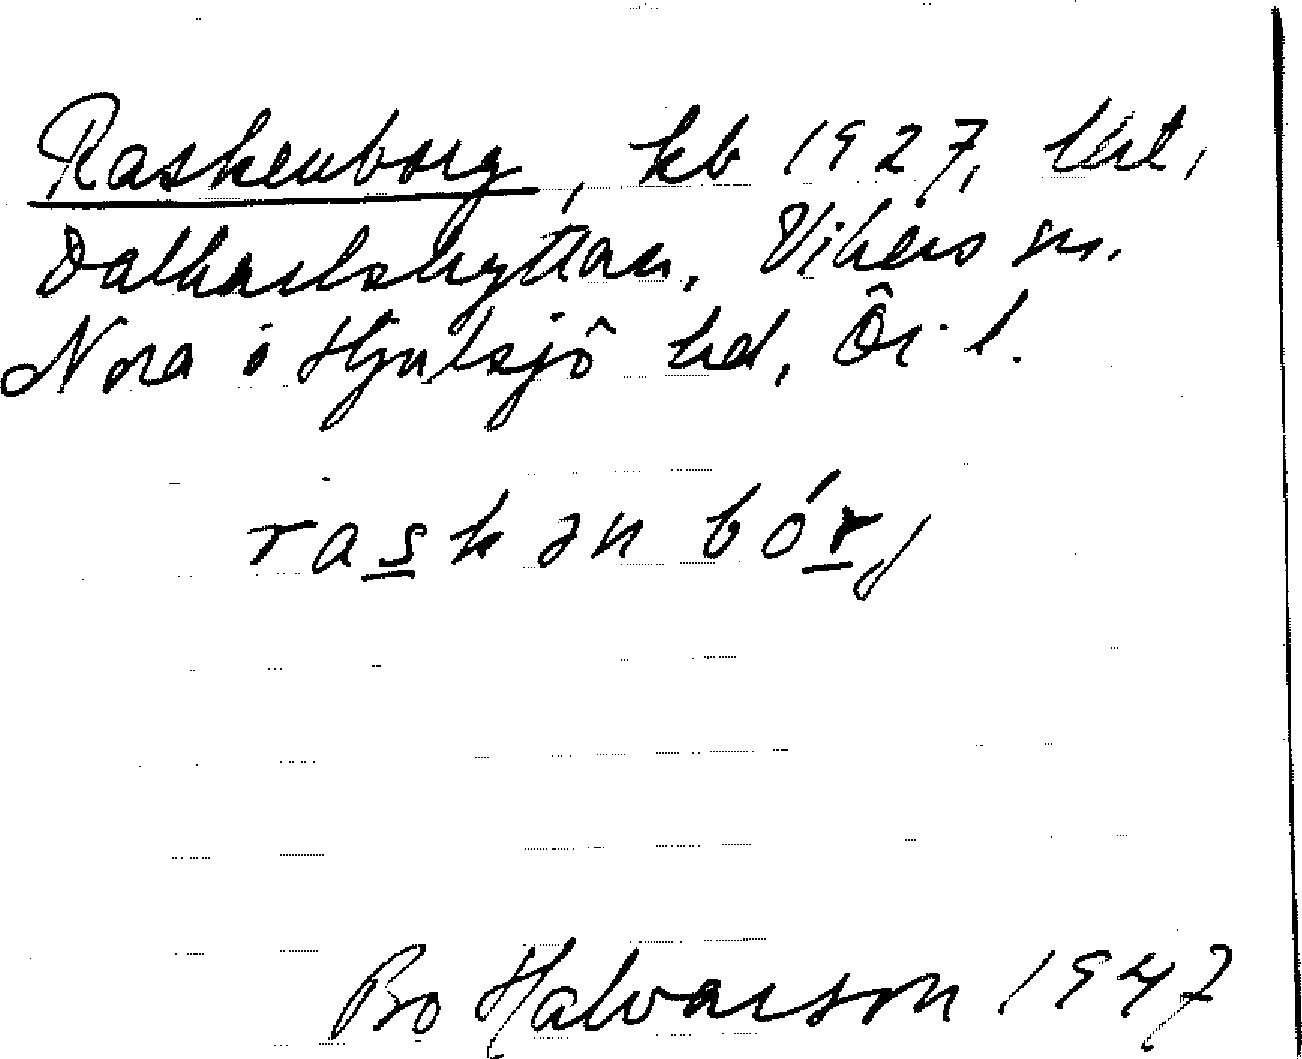 Raskenborg, kb 1927, lht,
Dalkarlshyttan, Vikers sn.
Nora o Hjulsjö hd, Ör. l.
raskənbórj
Bo Halvarson 1947